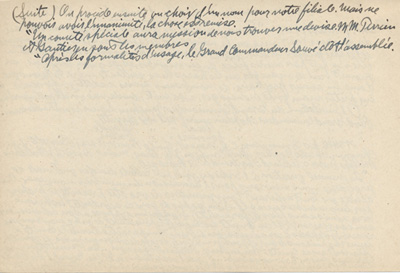 (Suite) On procède ensuite au choix d'un nom pour notre filiale. Mais ne
pouvois avoir l'unanimité, la chose est remise.
"Un comité spéciale aura mission de nous trouver une devise. M.M. Perrien
et Gauthier en sont les membres.
"Après les formalités d'usage, le Grand Commandeur Sauvé clôt l'assemblée.